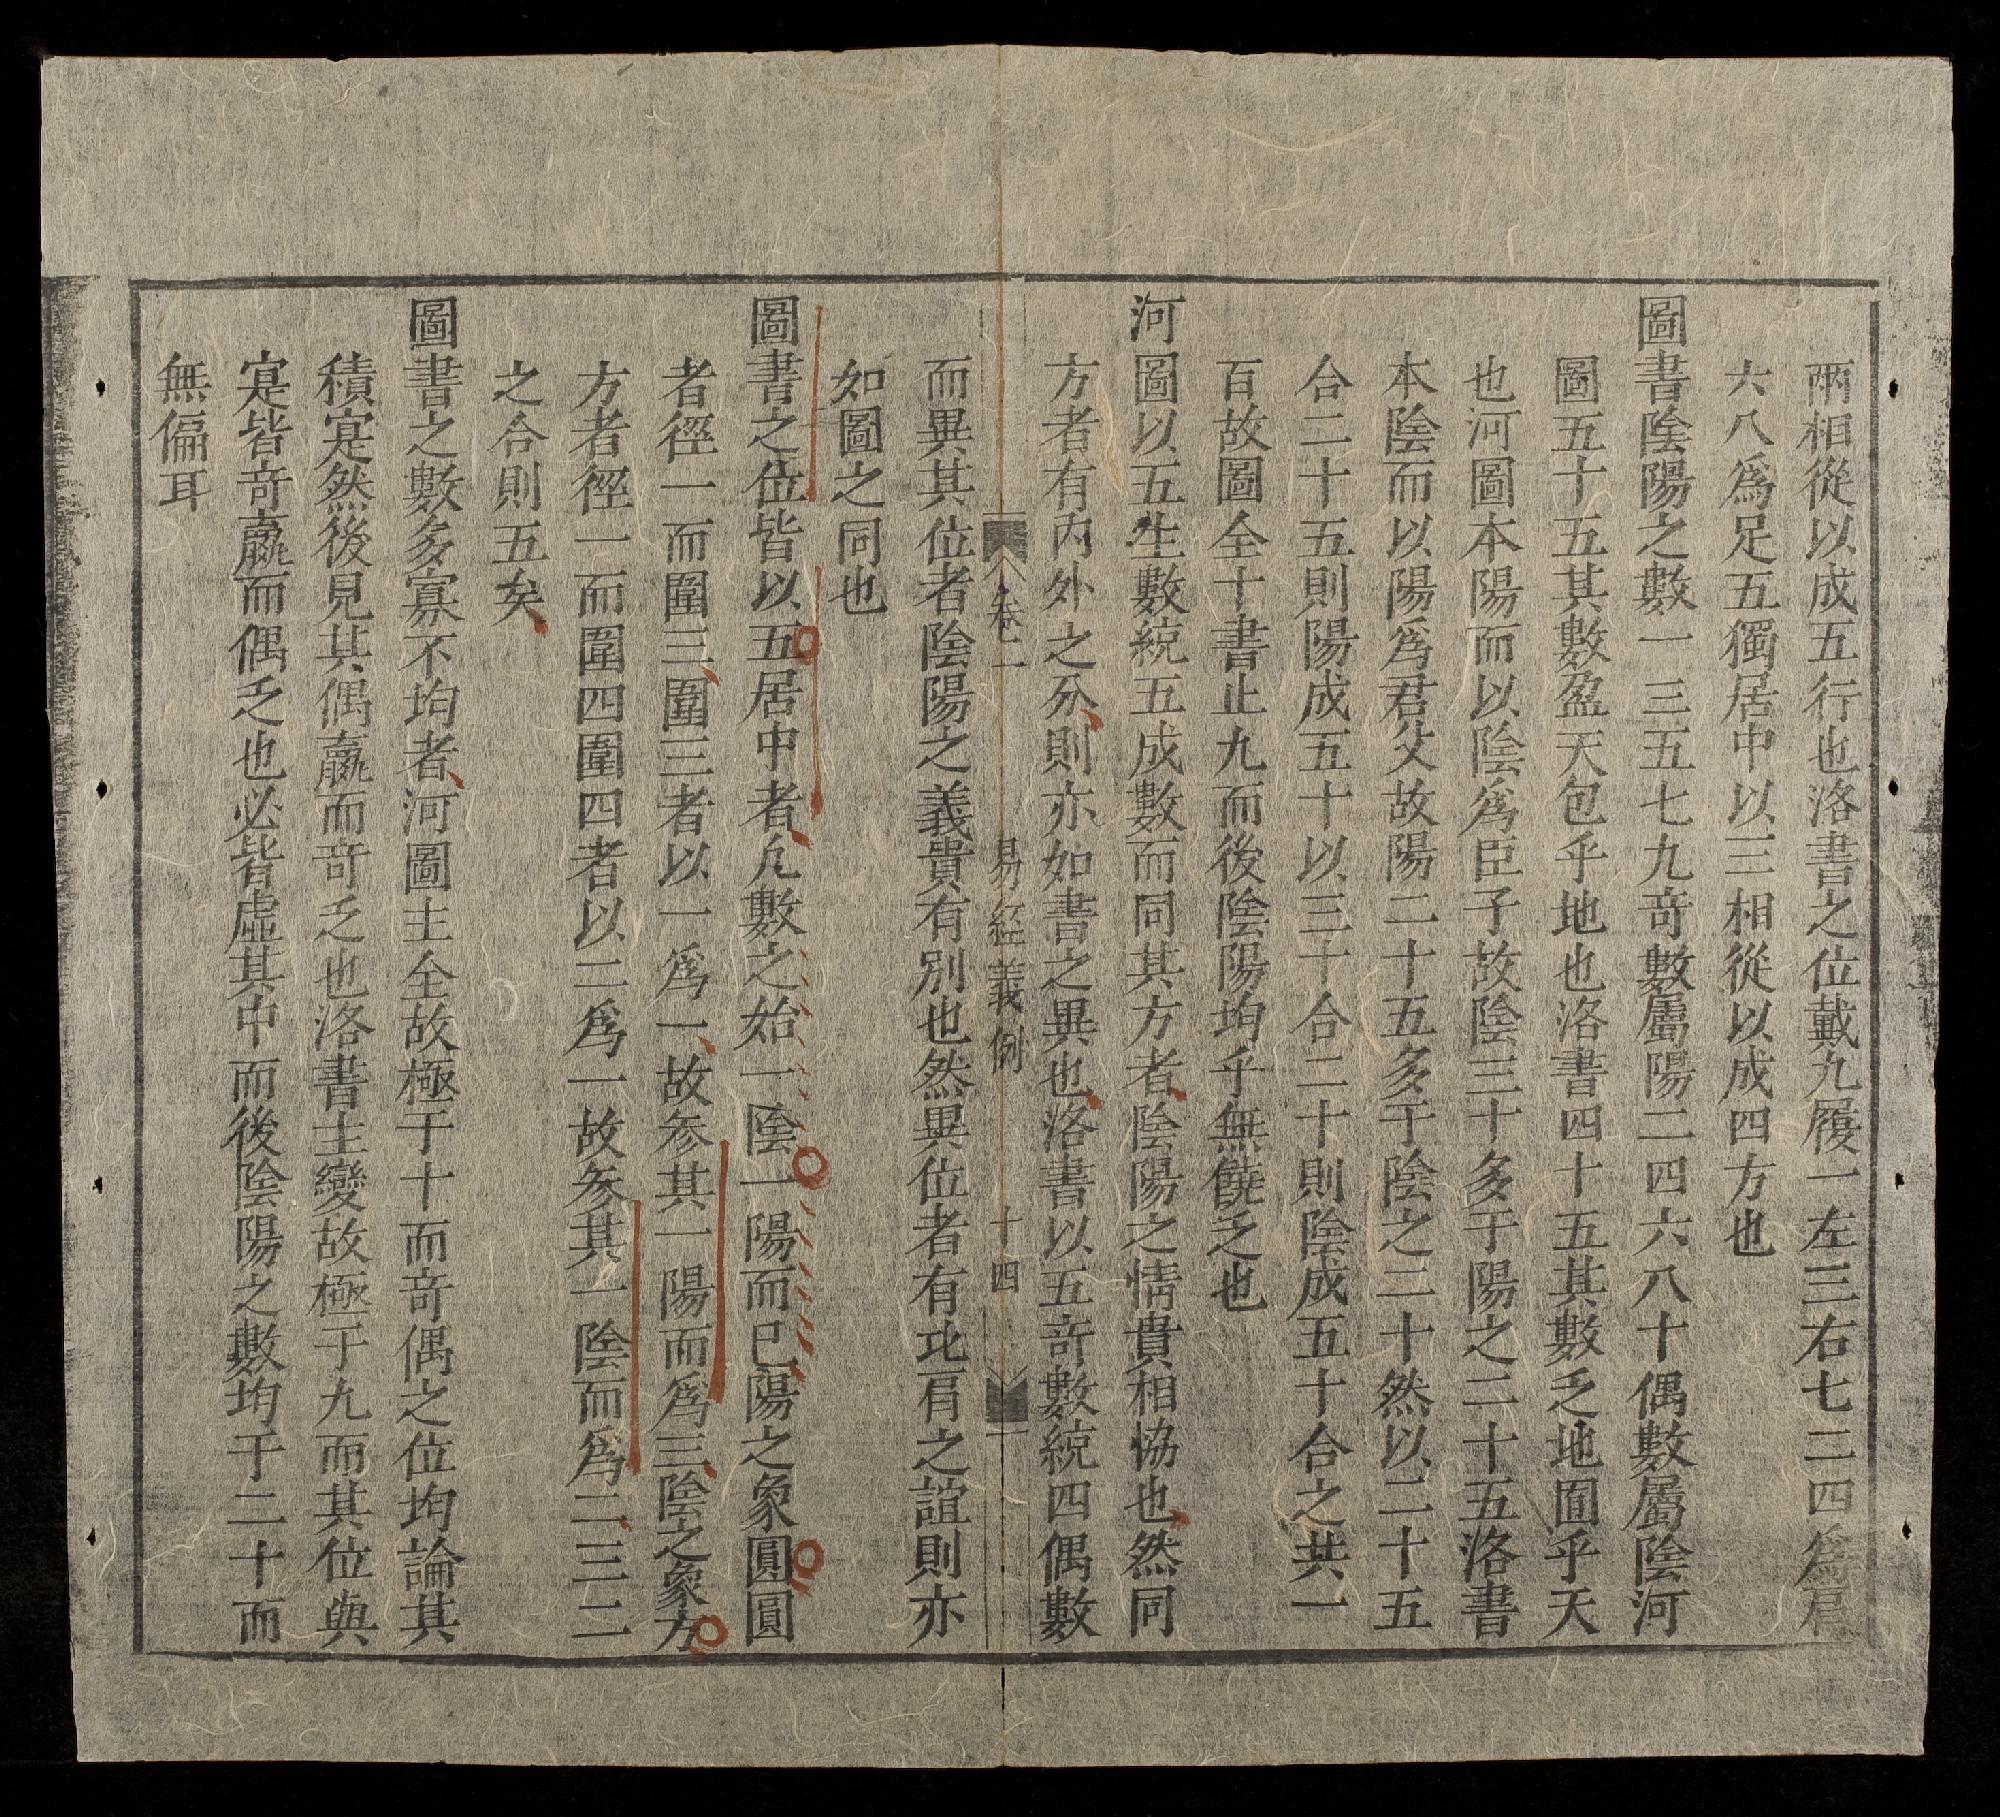 兩相從以成五行也洛書之位戴九履一左三右七二四爲肩
六八爲足五獨居中以三相從以成四方也
圖書陰陽之數一三五七九竒數屬陽二四六八十偶數屬陰河
圖五十五其數盈天包乎地也洛書四十五其數乏地囿乎天
也河圖本陽而以陰爲臣子故陰三十多于陽之二十五洛書
本陰而以陽爲君父故陽二十五多于陰之二十然以二十五
合二十五則陽成五十以三十合二十則陰成五十合之共一
百故圖全十書止九而後陰陽均乎無饒乏也
河圖以五生數統五成數而同其方者陰陽之情貴相恊也然同
方者有內外之分則亦如書之異也洛書以五竒數統四偶數
卷二 易經義例 十四
而異其位者陰陽之義貴有別也然異位者有比肩之誼則亦
如圖之同也
圖書之位皆以五居中者凡數之始一陰一陽而已陽之象圓圓
者徑一而圍三圍三者以一爲一故叅其一陽而爲三陰之象方
方者徑一而圍四圍四者以二爲一故叅其一陰而爲二三二
之合則五矣
圖書之數多寡不均者河圖主全故極于十而竒偶之位均論其
積寔然後見其偶贏而竒乏也洛書主變故極于九而其位與
寔皆竒贏而偶乏也必皆虛其中而後陰陽之數均于二十而
無偏耳